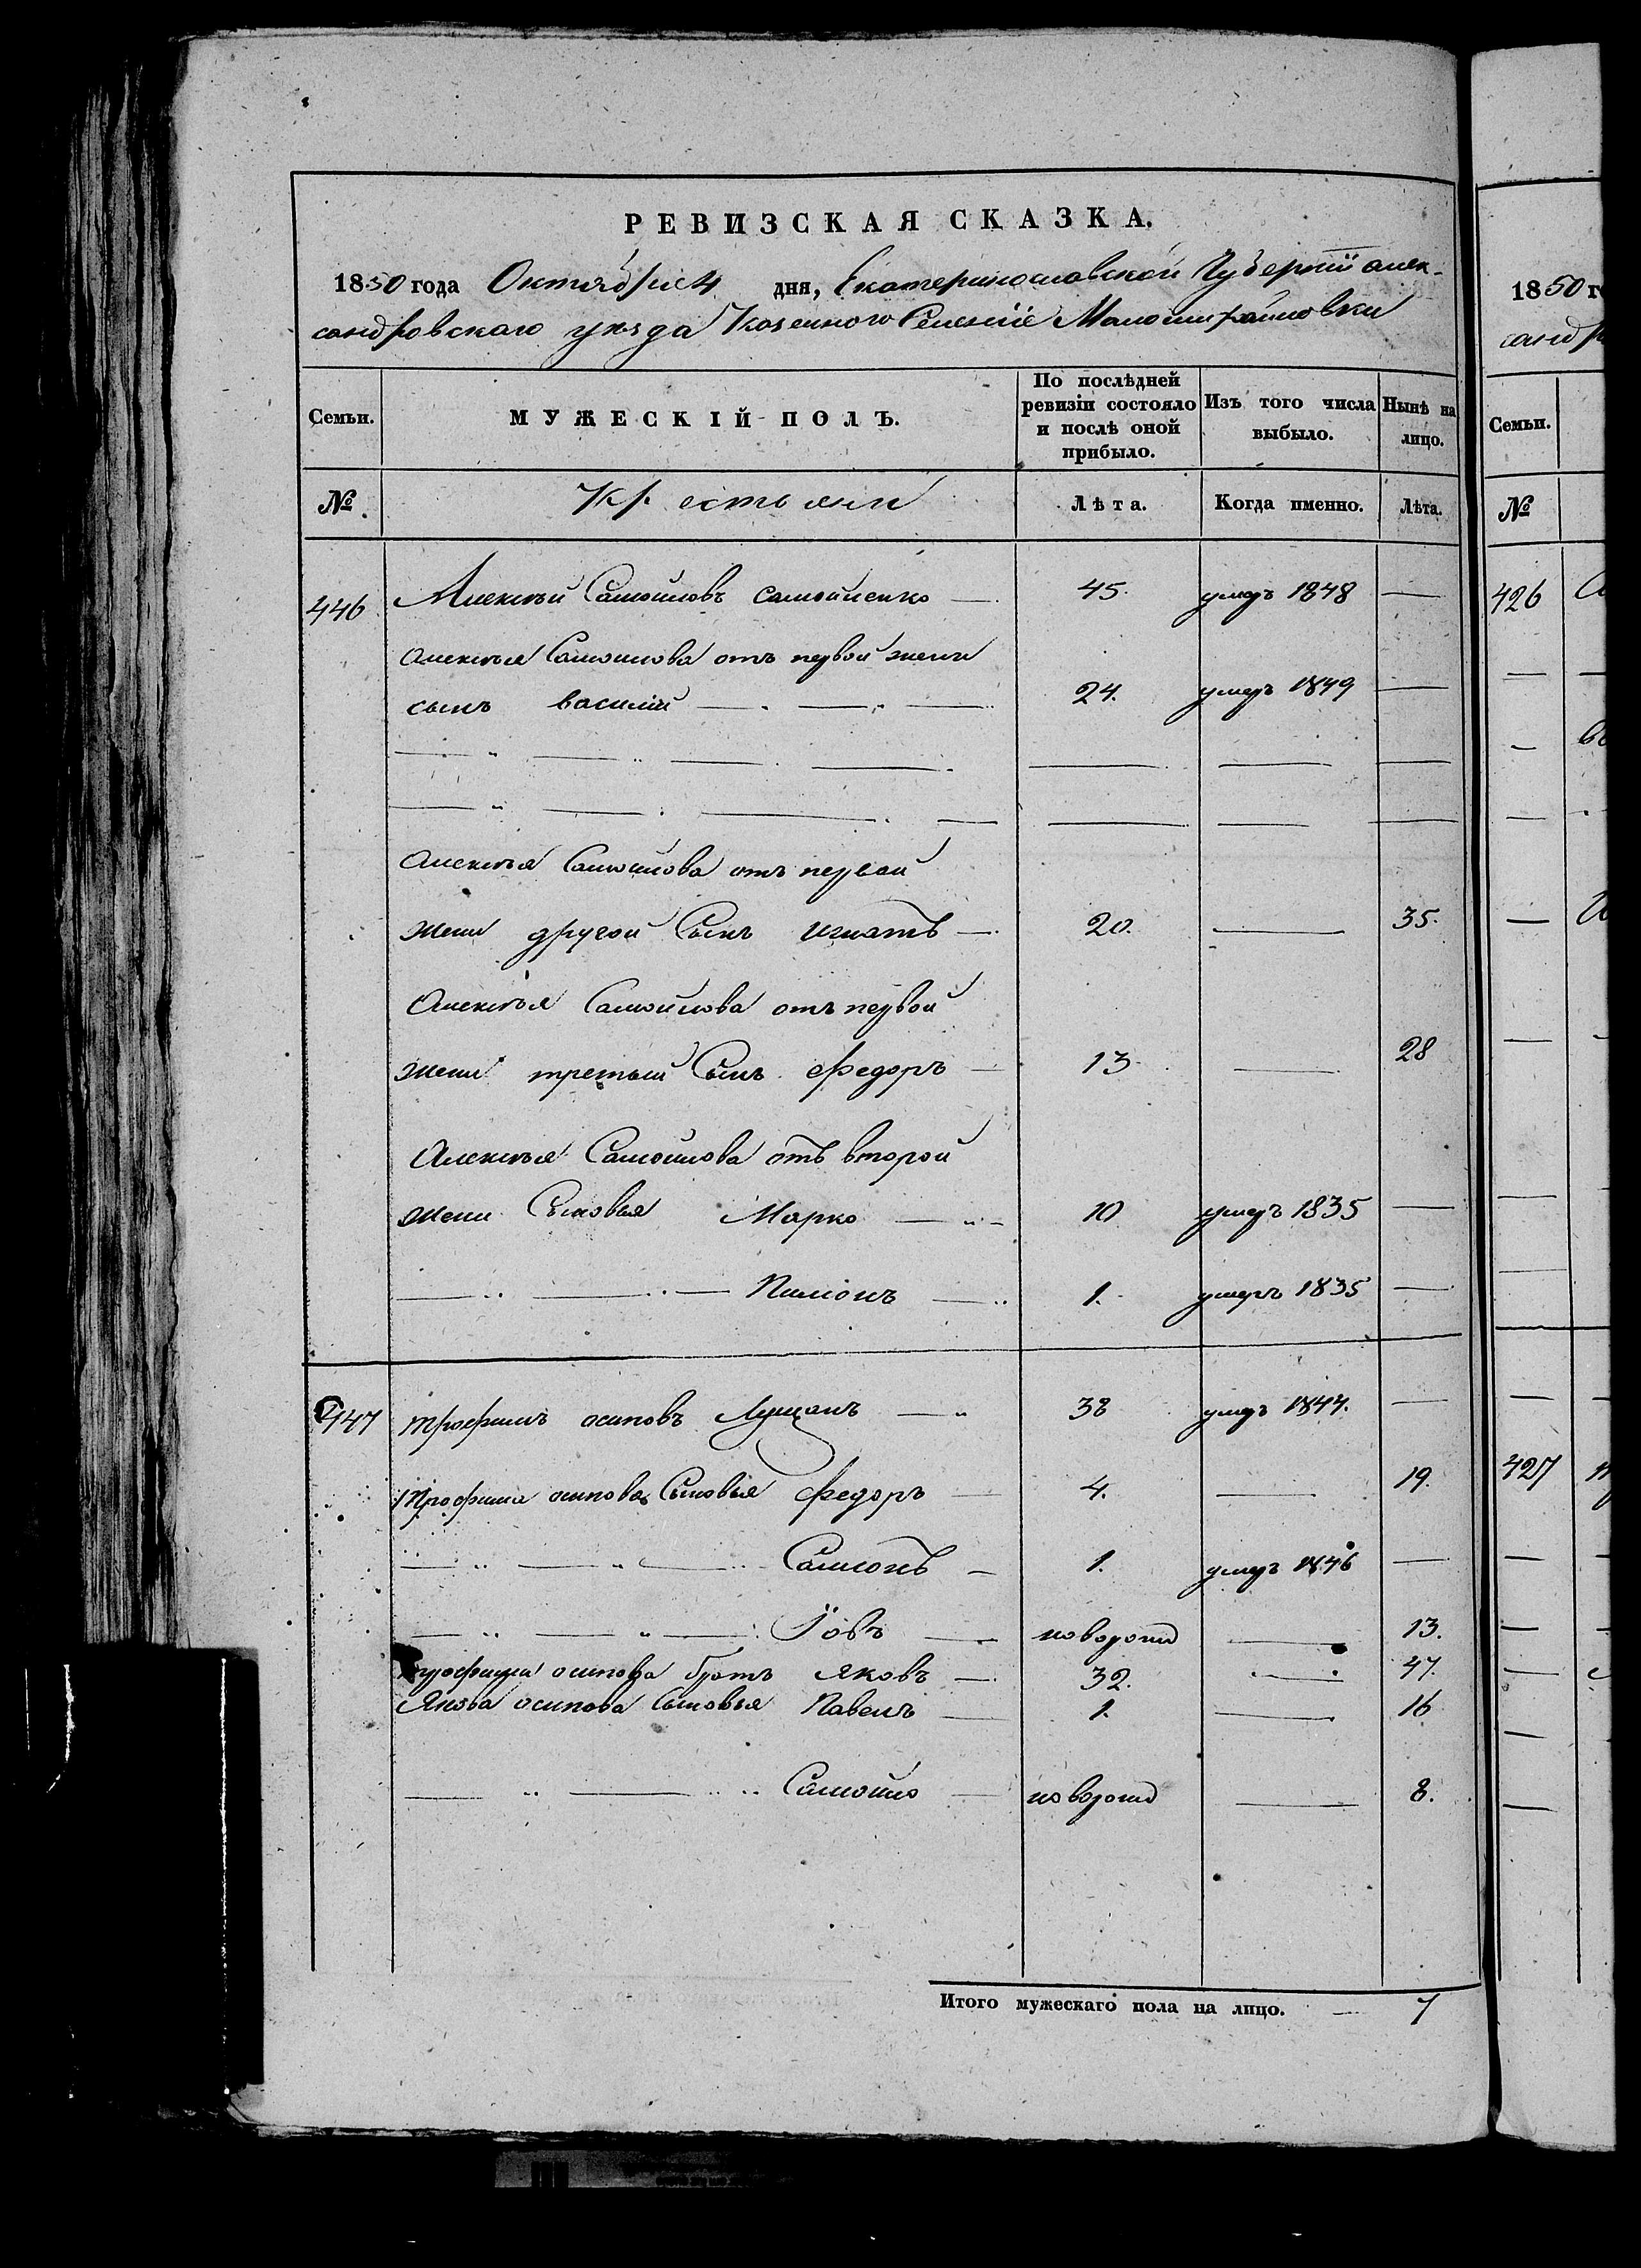 РЕВИЗСКАЯ СКАЗКА.
1850 года Октября 4 дня, Екатеринославской Губернии алек-
сандровскаго уезда Казенного Селение Маломихайловки
Семьи. МУЖЕСКІЙ ПОЛЪ. По послѣдней ревизіи состояло и послѣ оной прибыло. Изъ того числа выбыло. Нынѣ на лицо.
№ Крестьяни Лѣта. Когда именно. Лѣта.
446 Алексѣй Самойловъ Самойленко — 45. умеръ 1848 —
Алексѣя Самойлова отъ первой жени
сынъ василій — 24. умеръ 1849 —
Алексѣя Самойлова отъ первой
жени другой Сынъ игнатъ — 20. — 35.
Алексѣя Самойлова отъ первой
жени третьий Сынъ Федоръ — 13 — 28
Алексѣя Самойлова отъ второй
жени Сыновья Марко — 10 умеръ 1835 —
Пилипъ — 1. умеръ 1835 —
447 трофимъ осиповъ Лущанъ — 38 умеръ 1844. —
трофима осипова Сыновья Федоръ — 4. — 19.
Самсонъ — 1. умеръ 1846 —
Іовъ — новорожд — 13.
трофима осипова братъ яковъ — 32. — 47.
Якова осипова Сыновья Павелъ — 1. — 16
Самойло — новорожд — 8.
Итого мужескаго пола на лицо. — 7
1850 г
санд
Семьи.
№
426
427